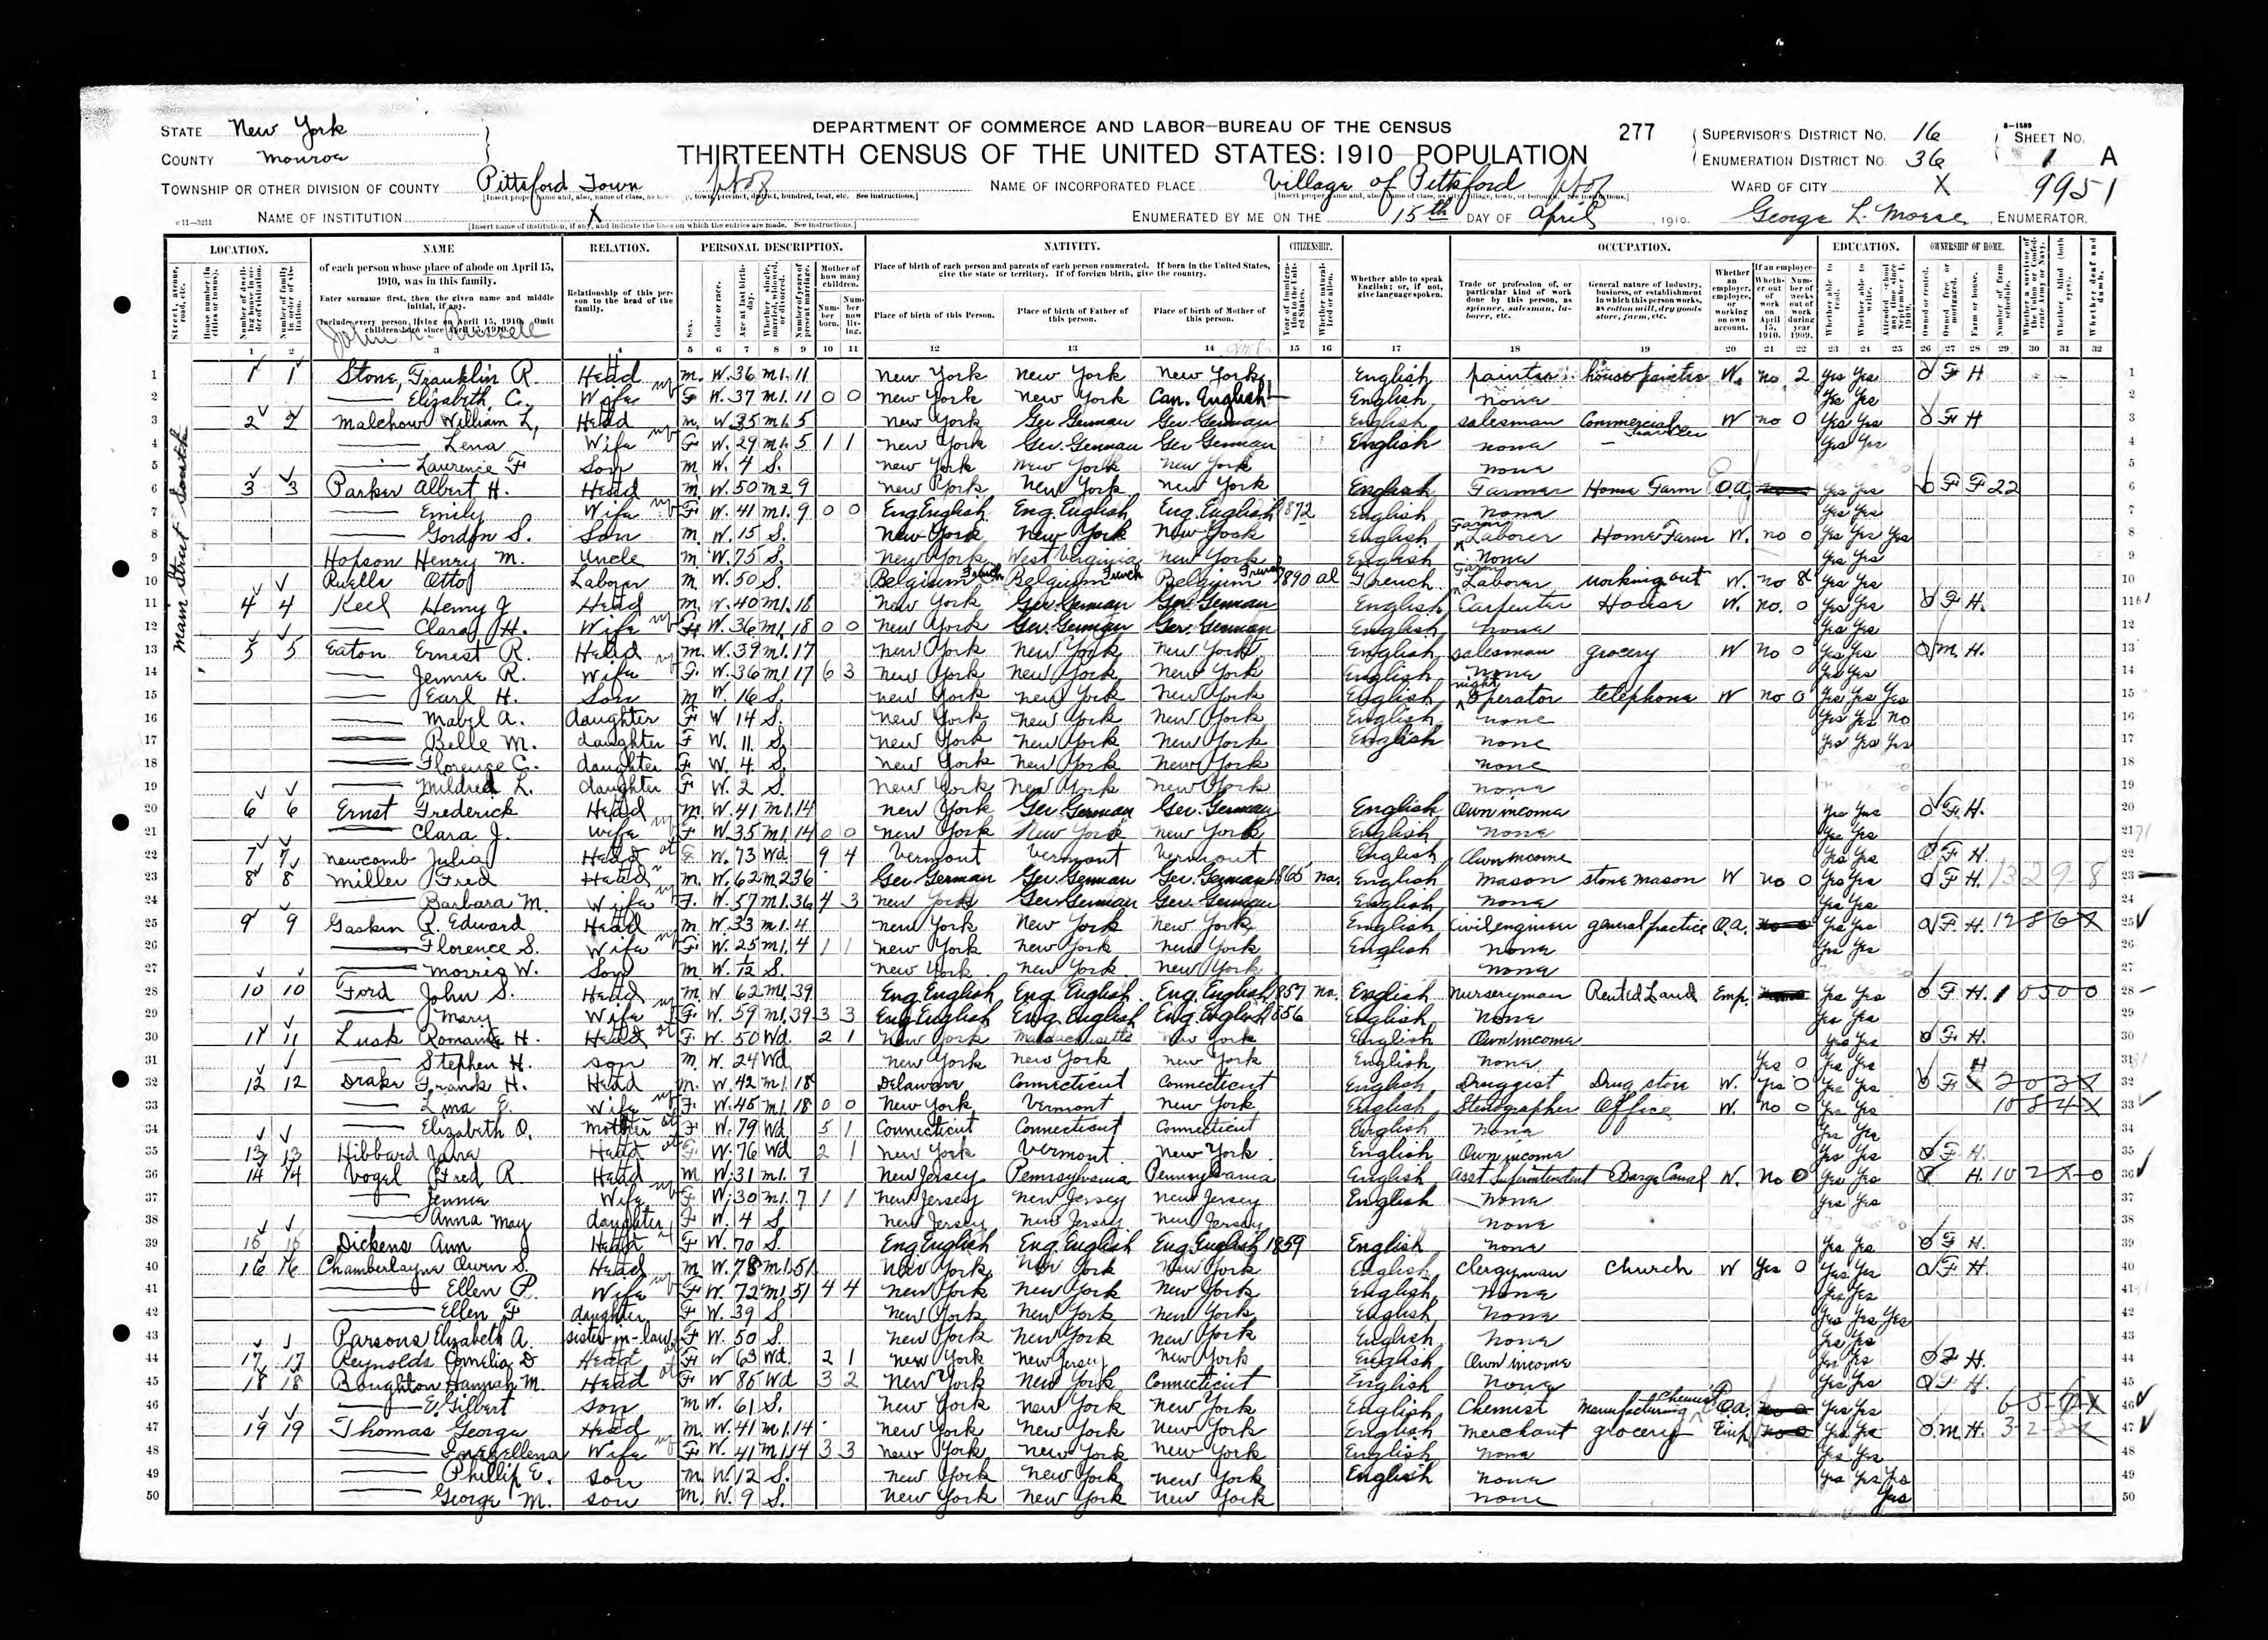 STATE New York
COUNTY Monroe
DEPARTMENT OF COMMERCE AND LABOR—BUREAU OF THE CENSUS
THIRTEENTH CENSUS OF THE UNITED STATES: 1910 POPULATION
277
SUPERVISOR'S DISTRICT No. 16
ENUMERATION DISTRICT No. 36
8-1589
SHEET No. 1 A
9951
TOWNSHIP OR OTHER DIVISION OF COUNTY Pittsford Town
NAME OF INCORPORATED PLACE Village of Pittsford
WARD OF CITY X
NAME OF INSTITUTION X
ENUMERATED BY ME ON THE 15th DAY OF April, 1910. George L. Morse, ENUMERATOR.
LOCATION. NAME RELATION. PERSONAL DESCRIPTION. NATIVITY. CITIZENSHIP. OCCUPATION. EDUCATION. OWNERSHIP OF HOME.
of each person whose place of abode on April 15, 1910, was in this family.
Enter surname first, then the given name and middle initial, if any.
Include every person living on April 15, 1910. Omit children born since April 15, 1910.
Relationship of this person to the head of the family.
Place of birth of each person and parents of each person enumerated. If born in the United States, give the state or territory. If of foreign birth, give the country.
Place of birth of this Person. Place of birth of Father of this person. Place of birth of Mother of this person.
Whether able to speak English; or, if not, give language spoken.
Main Street South
1 1 1 Stone, Franklin R. Head M. W. 36 M1. 11 New York New York New York English painter house painter W. no 2 Yes Yes O F H
2 Elizabeth C. Wife F W. 37 M1. 11 0 0 New York New York Can. English English none Yes Yes
3 2 2 Malchow William L, Head M. W. 35 M1. 5 New York Ger. German Ger. German English salesman Commercial Traveller W no 0 Yes Yes O F H
4 Lena Wife F W. 29 M1. 5 1 1 New York Ger. German Ger. German English none Yes Yes
5 Laurence F Son M W. 4 S. New York New York New York none
6 3 3 Parker Albert H. Head M. W. 50 M2 9 New York New York New York English Farmer Home Farm O.a. Yes Yes O F F 22
7 Emily Wife F W. 41 M1. 9 0 0 Eng English Eng. English Eng. English 1872 English none Yes Yes
8 Gordon S. Son M. W. 15 S. New York New York New York English Farm Laborer Home Farm W. no 0 Yes Yes Yes
9 Hopson Henry M. Uncle M W. 75 S. New York West Virginia New York English None Yes Yes
10 Ruelle Otto Laborer M. W. 50 S. Belgium French Belgium French Belgium French 1890 al French Farm Laborer working out W. no 8 Yes Yes
11 4 4 Keel Henry J Head M. W. 40 M1. 18 New York Ger. German Ger. German English Carpenter House W. no. 0 Yes Yes O F H.
12 Clara H. Wife F W. 36 M1. 18 0 0 New York Ger. German Ger. German English none Yes Yes
13 5 5 Eaton Ernest R. Head M. W. 39 M1. 17 New York New York New York English salesman grocery W no 0 Yes Yes O M. H.
14 Jennie R. Wife F. W. 36 M1 17 6 3 New York New York New York English None Yes Yes
15 Earl H. Son M W. 16 S. New York New York New York English night Operator telephone W no 0 Yes Yes Yes
16 Mabel A. daughter F W 14 S. New York New York New York English none Yes Yes no
17 Belle M. daughter F W. 11. S. New York New York New York English none Yes Yes Yes
18 Florence C. daughter F W. 4. S. New York New York New York none
19 Mildred L. daughter F W. 2 S. New York New York New York none
20 6 6 Ernst Frederick Head M. W. 41 M1. 14 New York Ger. German Ger. German English Own income Yes Yes O F. H.
21 Clara J. Wife F W. 35 M1. 14 0 0 New York New York New York English none Yes Yes
22 7 7 Newcomb Julia Head F W. 73 Wd. 9 4 Vermont Vermont Vermont English Own income Yes Yes O F H
23 8 8 Miller Fred Head M. W. 62 M2 36 Ger. German Ger. German Ger. German 1865 na. English Mason stone mason W no 0 Yes Yes O F H. 13 2 9 8
24 Barbara M. Wife F. W. 57 M1. 36 4 3 New York Ger. German Ger. German English None Yes Yes
25 9 9 Gaskin R. Edward Head M W. 33 M1. 4 New York New York New York English Civil engineer general practice O.a. Yes Yes O F H. 12 8 6 X
26 Florence S. Wife F. W. 25 M1. 4 1 1 New York New York New York English None Yes Yes
27 Morris W. Son M W. 1/12 S. New York New York New York none
28 10 10 Ford John S. Head M W 62 M1. 39 Eng English Eng English Eng. English 1857 na. English Nurseryman Rented Land Emp. Yes Yes O F H. 1 0 5 0 0
29 Mary Wife F. W. 59 M1. 39 3 3 Eng English Eng. English Eng. English 1856 English None Yes Yes
30 11 11 Lusk H. Head F. W. 50 Wd. 2 1 New York Massachusetts New York English Own income Yes Yes O F H.
31 Stephen H. son M. W. 24 Wd New York New York New York English None Yes 0 Yes Yes
32 12 12 Drake Frank H. Head M. W. 42 M1. 18 Delaware Connecticut Connecticut English Druggist Drug store W. Yes 0 Yes Yes O F H 2 0 3 X
33 Lina E. Wife F. W. 45 M1. 18 0 0 New York Vermont New York English Stenographer Office W. no 0 Yes Yes 10 8 4 X
34 Elizabeth O. Mother F W. 79 Wd 5 1 Connecticut Connecticut Connecticut English None Yes Yes
35 13 13 Hibbard Head F W. 76 Wd 2 1 New York Vermont New York English Own income Yes Yes O F H.
36 14 14 Vogel Fred R. Head M W. 31 M1. 7 New Jersey Pennsylvania Pennsylvania English Asst Superintendent Barge Canal W. No 0 Yes Yes H. 10 2 X 0
37 Jennie Wife F W. 30 M1. 7 1 1 New Jersey New Jersey New Jersey English None Yes Yes
38 Anna May daughter F W. 4 S New Jersey New Jersey New Jersey none
39 15 15 Dickens Ann Head F W. 70 S. Eng English Eng. English Eng. English 1859 English none Yes Yes O F H.
40 16 16 Chamberlayne Owen S. Head M W. 78 M1. 51 New York New York New York English Clergyman Church W Yes 0 Yes Yes O F H.
41 Ellen P. Wife F W. 72 M1. 51 4 4 New York New York New York English None Yes Yes
42 Ellen F daughter F W. 39 S New York New York New York English None Yes Yes Yes
43 Parsons Elizabeth A. sister-in-law F W. 50 S. New York New York New York English None Yes Yes
44 17 17 Reynolds Cornelia D Head F W 63 Wd. 2 1 New York New Jersey New York English Own income Yes Yes O F H.
45 18 18 Boughton Hannah M. Head F W 85 Wd 3 2 New York New York Connecticut English None Yes Yes O F H.
46 E. Gilbert son M W. 61 S. New York New York New York English Chemist Manufacturing Chemist O.a. Yes Yes
47 19 19 Thomas George Head M. W. 41 M1. 14 New York New York New York English Merchant grocery Emp Yes Yes O. M H.
48 Wife F W. 41 M1. 14 3 3 New York New York New York English none Yes Yes
49 Phillip E. son M. W. 12 S. New York New York New York English none Yes Yes Yes
50 George M. son M. W. 9 S. New York New York New York none Yes